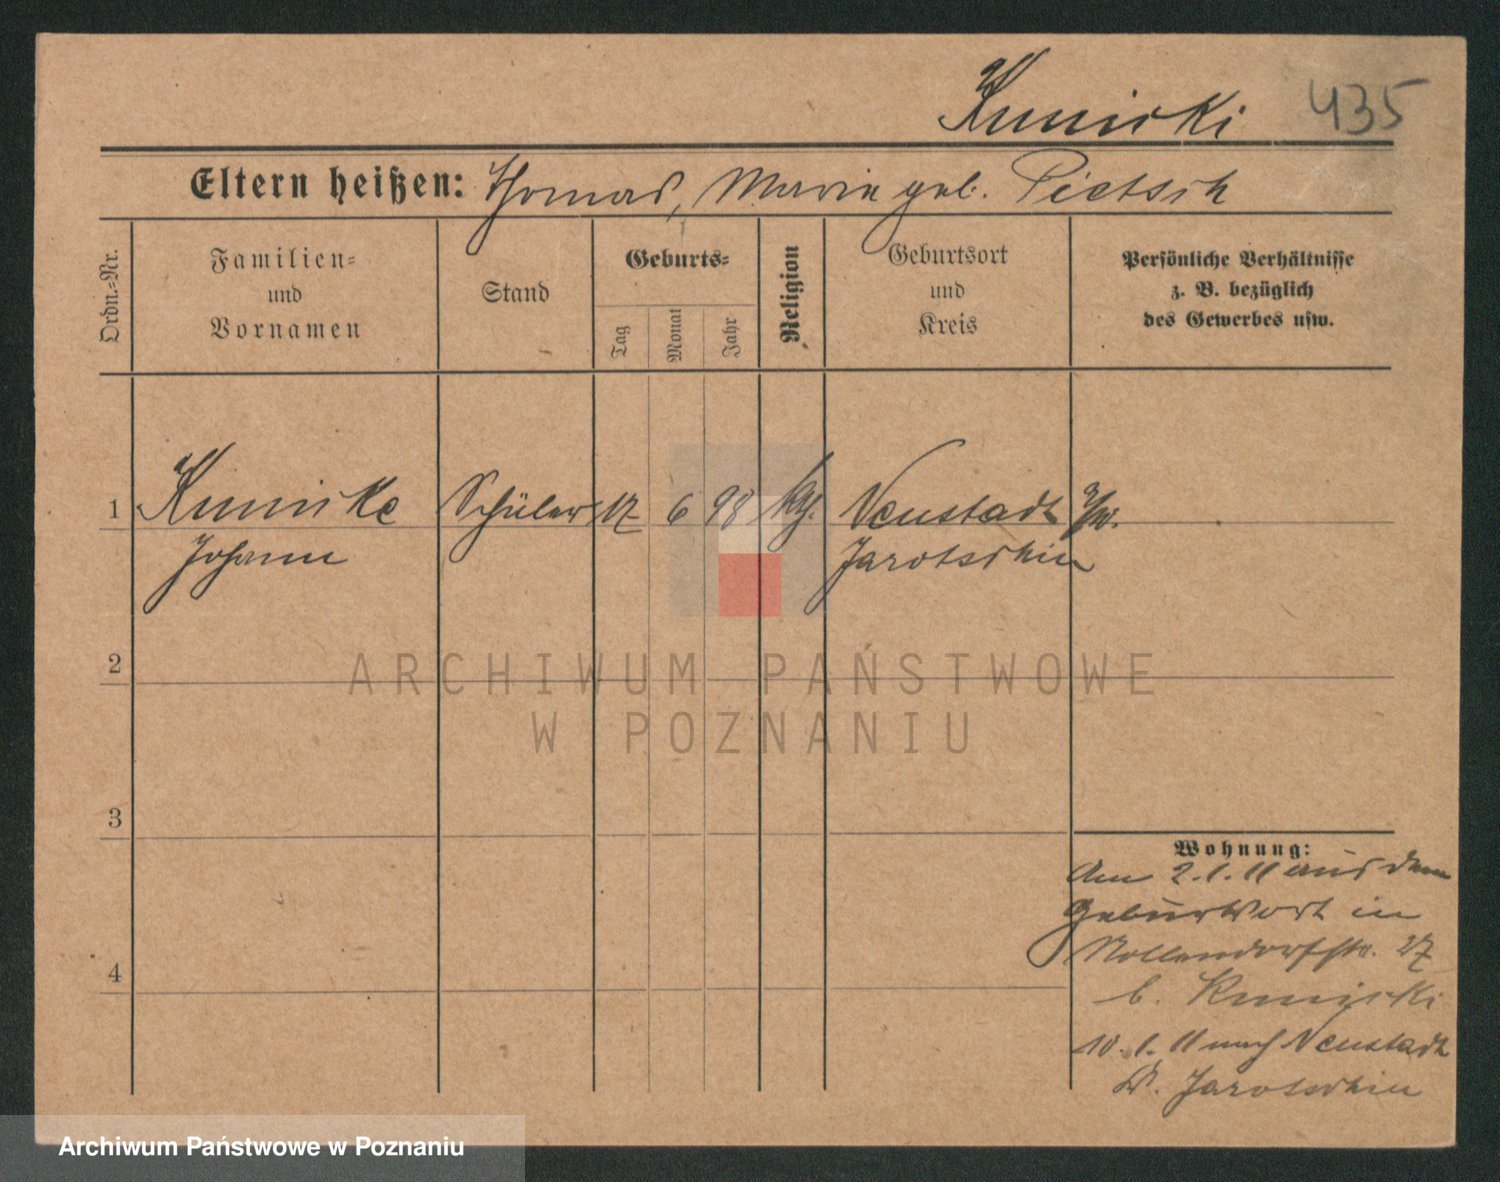 Kunicki 435
Eltern heißen: Thomas, Maria geb. Pietsch
Ordn.=Nr.
Familien=
und
Vornamen
Stand
Geburts=
Tag
Monat
Jahr
Religion
Geburtsort
und
Kreis
Persönliche Verhältnisse
z. B. bezüglich
des Gewerbes usw.
1 Schüler 17 6 98 kth. Neustadt
Johann Jarotschin
2
3
4
Wohnung:
Am 2.1.11 aus dem
Geburtsort in
Nollendorfstr. 27
b. Kunicki
10.1.11 nach Neustadt
Kr. Jarotschin
ARCHIWUM PAŃSTWOWE
W POZNANIU
Archiwum Państwowe w Poznaniu